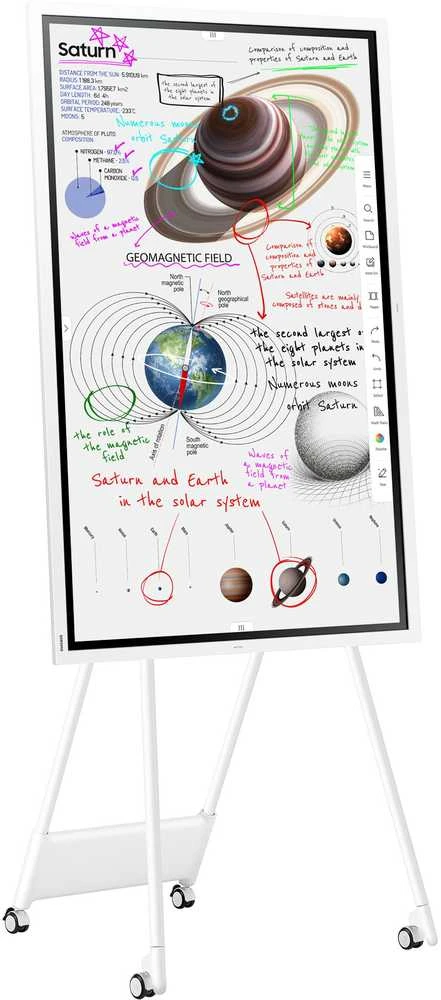 Saturn
DISTANCE FROM THE SUN:
RADIUS:
SURFACE AREA:
DAY LENGTH: 6d 4h
ORBITAL PERIOD: 248 years
SURFACE TEMPERATURE: -233°C
MOONS: 5
ATMOSPHERE OF PLUTO
COMPOSITION:
NITROGEN -
METHANE -
CARBON
MONOXIDE -
the second largest of
the eight planets in
the solar system
Comparison of composition and
properties of Saturn and Earth
Numerous moons
orbit Saturn
waves of a magnetic
field from a planet
GEOMAGNETIC FIELD
Comparison of
composition and
properties of
Saturn and Earth
Satellites are mainly
composed of stones and d
North
magnetic
pole
North
geographical
pole
the second largest o
the eight planets in
the solar system
Numerous moons
orbit Saturn
the role of
the magnetic
field
Axis of rotation
South
magnetic
pole
Waves of
a magnetic
field from
a planet
Saturn and Earth
in the solar system
Mercury
Venus
Earth
Mars
Jupiter
Saturn
Uranus
Neptune
Menu
Search
Undo
Select